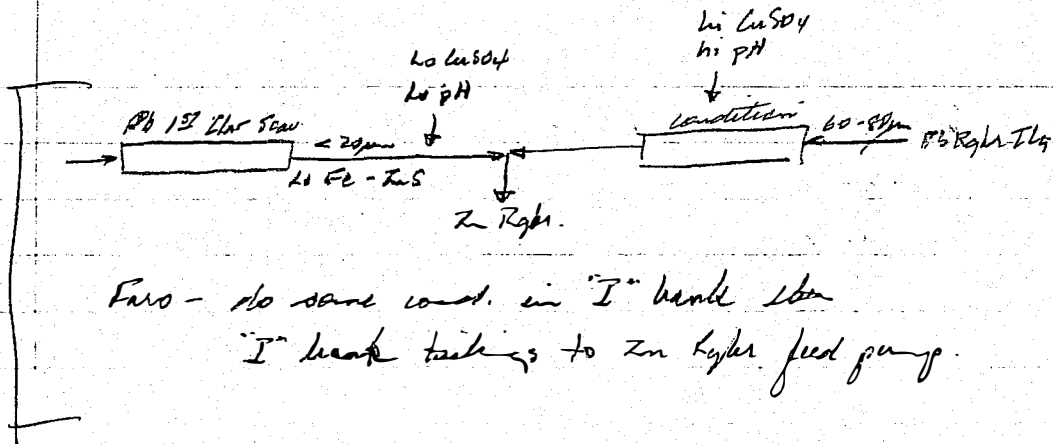 Lo CuSO4
Lo pH
Hi CuSO4
hi pH
Pb 1st Clnr Scav
< 20µm
Lo Fe - ZnS
condition
60-80µm
Pb Rghr Tlg
Zn Rghr.
Faro - do same cond. in "I" bank then
"I" bank tailings to Zn Rghr feed pump.